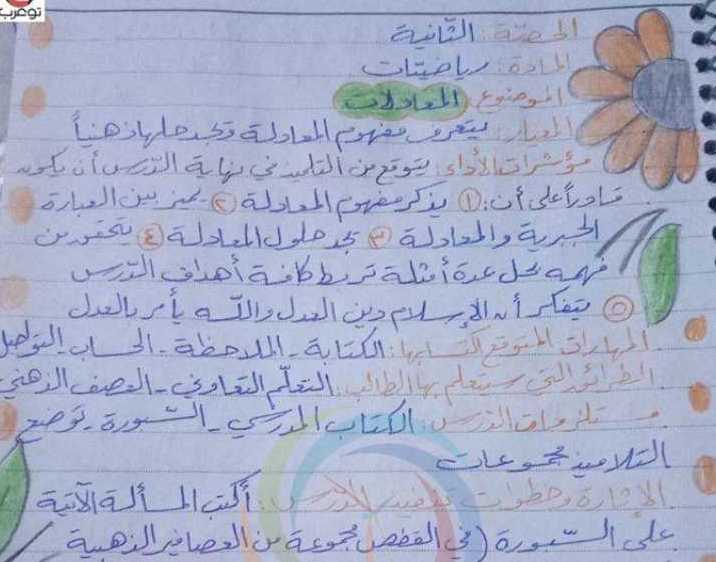 توعرب
الحصّة: الثّانية
المادة: رياضيّات
الموضوع: المعادلات
المعيار: يتعرف مفهوم المعادلة ويجد حلها ذهنياً
مؤشرات الأداء: يتوقع من التلميذ في نهاية الدّرس أن يكون
قادراً على أن: ① يذكر مفهوم المعادلة ② يميز بين العبارة
الجبرية والمعادلة ③ يجد حلول المعادلة ④ يتحقق من
فهمه بحل عدة أمثلة تربط كافة أهداف الدّرس
⑤ يتفكر أن الإسلام دين العدل والله يأمر بالعدل
المهارات المتوقع اكتسابها: الكتابة - الملاحظة - الحساب - التواصل
الطرائق التي سيتعلم بها الطالب: التعلّم التعاوني - العصف الذهني
مستلزمات الدّرس: الكتاب المدرسي - السّبورة - توضع
التلاميذ مجموعات
الإثارة وخطوات تنفيذ الدّرس: أكتب المسألة الآتية
على السّبورة (في القفص مجموعة من العصافير الذهبية